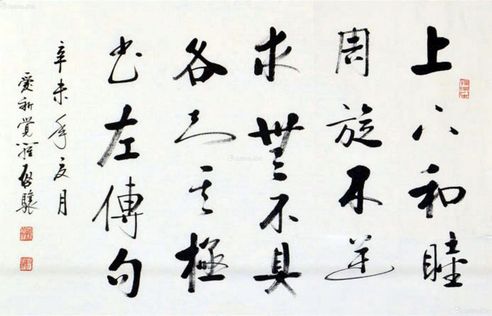 上下和睦
周旋不逆
求無不具
各知其極
书左傳句
辛未年夏月
愛新覺羅啟驤